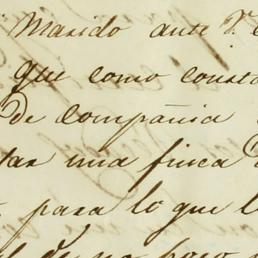 Marido ante V.
que como consta
de Compañia
tar una finca
para lo que l